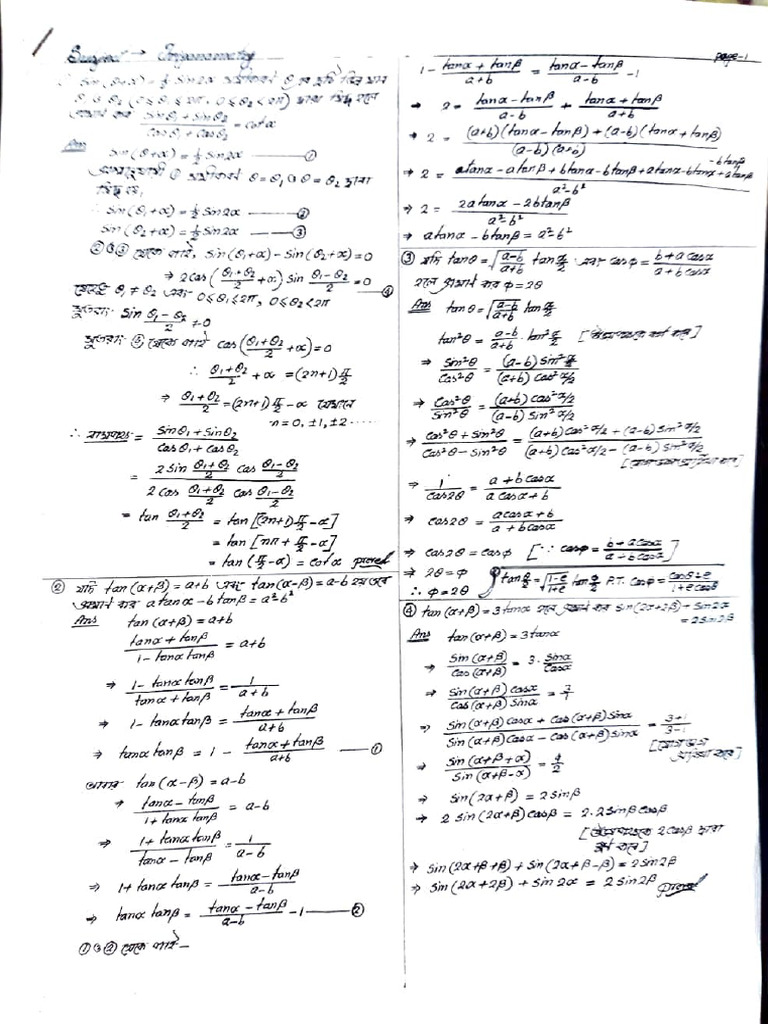 Subject → Trigonometry
page-1
sin(θ+α) = ½ sin2α
sinθ₁ + sinθ₂ / cosθ₁ + cosθ₂ = cotα
Ans
sin(θ+α) = ½ sin2α —— ①
∴ sin(θ₁+α) = ½ sin2α —— ②
sin(θ₂+α) = ½ sin2α —— ③
② ও ③ থেকে পাই, sin(θ₁+α) − sin(θ₂+α) = 0
⇒ 2cos((θ₁+θ₂)/2 + α) sin (θ₁−θ₂)/2 = 0 —— ④
যেহেতু θ₁ ≠ θ₂ এবং 0≤θ₁<2π, 0≤θ₂<2π
সুতরাং sin (θ₁−θ₂)/2 ≠ 0
সুতরাং থেকে পাই cos((θ₁+θ₂)/2 + α) = 0
∴ (θ₁+θ₂)/2 + α = (2n+1) π/2
⇒ (θ₁+θ₂)/2 = (2n+1) π/2 − α যেখানে
n = 0, ±1, ±2 ·····
∴ বামপক্ষ = (sinθ₁ + sinθ₂)/(cosθ₁ + cosθ₂)
= (2 sin (θ₁+θ₂)/2 cos (θ₁−θ₂)/2)/(2 cos (θ₁+θ₂)/2 cos (θ₁−θ₂)/2)
= tan (θ₁+θ₂)/2 = tan[(2n+1) π/2 − α]
= tan[nπ + π/2 − α]
= tan(π/2 − α) = cotα proved
② যদি tan(α+β) = a+b এবং tan(α−β) = a−b হয় তবে
প্রমাণ কর a tanα − b tanβ = a² b²
Ans tan(α+β) = a+b
(tanα + tanβ)/(1 − tanα tanβ) = a+b
⇒ (1 − tanα tanβ)/(tanα + tanβ) = 1/(a+b)
⇒ 1 − tanα tanβ = (tanα + tanβ)/(a+b)
⇒ tanα tanβ = 1 − (tanα + tanβ)/(a+b) —— ①
আবার tan(α−β) = a−b
⇒ (tanα − tanβ)/(1 + tanα tanβ) = a−b
⇒ (1 + tanα tanβ)/(tanα − tanβ) = 1/(a−b)
⇒ 1 + tanα tanβ = (tanα − tanβ)/(a−b)
⇒ tanα tanβ = (tanα − tanβ)/(a−b) − 1 —— ②
① ও ② থেকে পাই —
1 − (tanα + tanβ)/(a+b) = (tanα − tanβ)/(a−b) − 1
⇒ 2 = (tanα − tanβ)/(a−b) + (tanα + tanβ)/(a+b)
⇒ 2 = ((a+b)(tanα − tanβ) + (a−b)(tanα + tanβ))/((a−b)(a+b))
⇒ 2 = (a tanα − a tanβ + b tanα − b tanβ + a tanα − b tanα + a tanβ − b tanβ)/(a²−b²)
⇒ 2 = (2a tanα − 2b tanβ)/(a²−b²)
⇒ a tanα − b tanβ = a²−b²
③ যদি tanθ = √((a−b)/(a+b)) tan α/2 এবং cosφ = (b + a cosα)/(a + b cosα)
হলে প্রমাণ কর φ = 2θ
Ans tanθ = √((a−b)/(a+b)) tan α/2
tan²θ = (a−b)/(a+b) · tan² α/2 [উভয়পক্ষকে বর্গ করে]
⇒ sin²θ/cos²θ = ((a−b) sin² α/2)/((a+b) cos² α/2)
⇒ cos²θ/sin²θ = ((a+b) cos² α/2)/((a−b) sin² α/2)
⇒ (cos²θ + sin²θ)/(cos²θ − sin²θ) = ((a+b) cos² α/2 + (a−b) sin² α/2)/((a+b) cos² α/2 − (a−b) sin² α/2)
⇒ 1/cos2θ = (a + b cosα)/(a cosα + b)
⇒ cos2θ = (a cosα + b)/(a + b cosα)
⇒ cos2θ = cosφ [∵ cosφ = (b + a cosα)/(a + b cosα)]
⇒ 2θ = φ
∴ φ = 2θ
tan θ/2 = √((1−e)/(1+e)) tan φ/2 P.T. cosφ = (cosθ − e)/(1 − e cosθ)
④ tan(α+β) = 3tanα হলে প্রমাণ কর sin(2α+2β) + sin2α
= 2sin2β
Ans tan(α+β) = 3tanα
⇒ sin(α+β)/cos(α+β) = 3 · sinα/cosα
⇒ (sin(α+β) cosα)/(cos(α+β) sinα) = 3/1
⇒ (sin(α+β) cosα + cos(α+β) sinα)/(sin(α+β) cosα − cos(α+β) sinα) = (3+1)/(3−1)
⇒ sin(α+β+α)/sin(α+β−α) = 4/2
⇒ sin(2α+β) = 2 sinβ
⇒ 2 sin(2α+β) cosβ = 2·2 sinβ cosβ
[উভয়পক্ষকে 2cosβ দ্বারা
গুণ করে]
⇒ sin(2α+β+β) + sin(2α+β−β) = 2 sin2β
⇒ sin(2α+2β) + sin2α = 2 sin2β proved